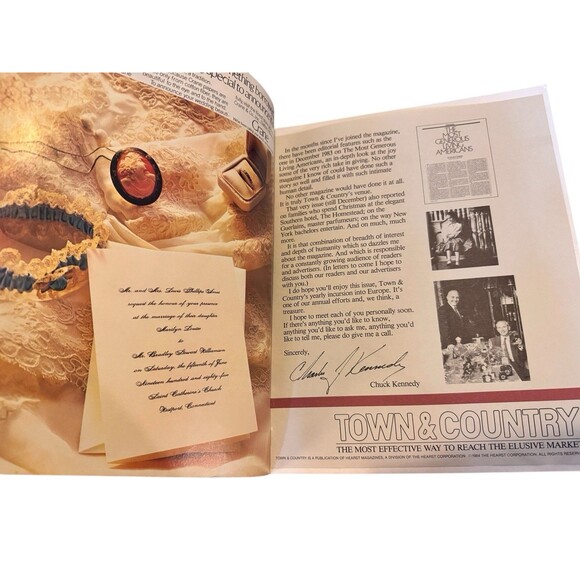 something bo
special to announ
tradition
because Crane papers are
only from cotton fibre, they are
beautiful to the eye and to the
To announce your wedding
Crane
Mr. and Mrs. Louis Phillips
request the honour of your presence
at the marriage of their daughter
Marilyn Louise
to
Mr. Bradley Stuart Williamson
on Saturday, the fifteenth of June
Nineteen hundred and eighty-five
Saint Catherine's Church
Westport, Connecticut
In the months since I've joined the magazine,
there have been editorial features such as the
one in December 1983 on The Most Generous
Living Americans, an in-depth look at the joy
some of the very rich take in giving. No other
magazine I know of could have done such a
story so well and filled it with such intimate
human detail.
No other magazine would have done it at all.
It is truly Town & Country's venue.
That very issue (still December) also reported
on families who spend Christmas at the elegant
Southern hotel, The Homestead; on the
Guerlains, master parfumeurs; on the way New
York bachelors entertain. And on much, much
more.
It is that combination of breadth of interest
and depth of humanity which so dazzles me
about the magazine. And which is responsible
for a constantly growing audience of readers
and advertisers. (In letters to come I hope to
discuss both our readers and our advertisers
with you.)
I do hope you'll enjoy this issue, Town &
Country's yearly incursion into Europe. It's
one of our annual efforts and, we think, a
treasure.
I hope to meet each of you personally soon.
If there's anything you'd like to know,
anything you'd like to ask me, anything you'd
like to tell me, please do give me a call.
Sincerely,
Charles J Kennedy
Chuck Kennedy
THE
MOST
GENEROUS
LIVING
AMERICANS
TOWN & COUNTRY
THE MOST EFFECTIVE WAY TO REACH THE ELUSIVE MARKE
TOWN & COUNTRY IS A PUBLICATION OF HEARST MAGAZINES, A DIVISION OF THE HEARST CORPORATION. ©1984 THE HEARST CORPORATION. ALL RIGHTS RESER